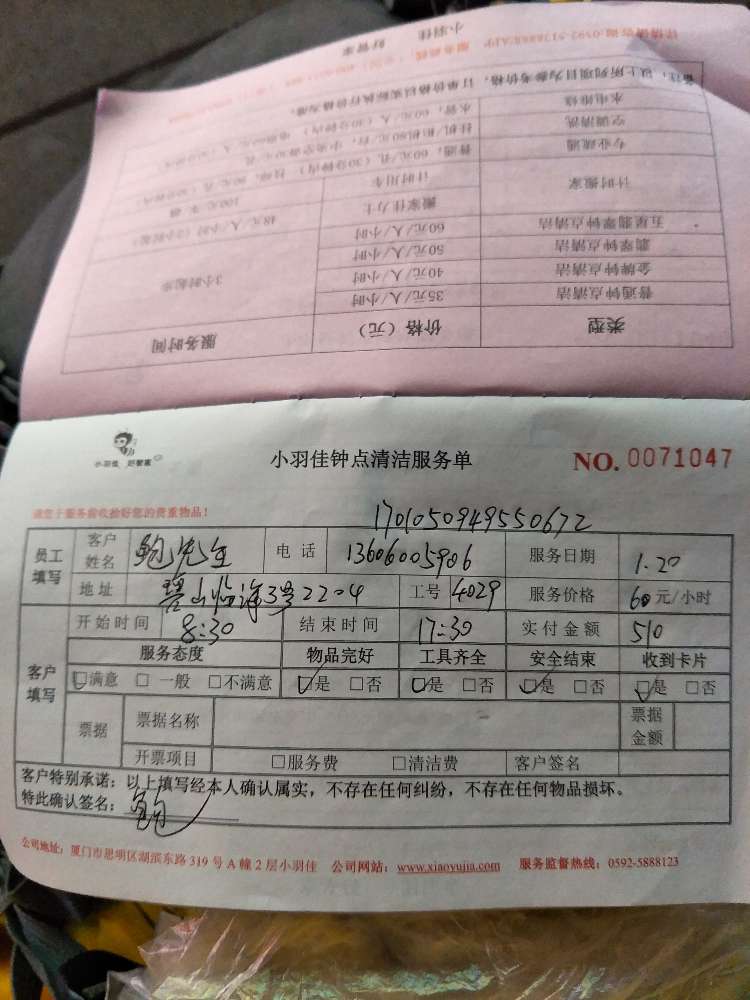 详情请咨询:0592-5138888/APP
小羽佳 好管家
备注:以上所列项目为参考价格,订单价格以实际执行价格为准。
水电维修 水管,60元/人(30分钟内)
空调清洗
专业疏通 普通,60元/孔(30分钟内)
计时搬家 计时用车 100元/车·趟
搬家佳力士 48元/人/小时(2小时起)
五星翡翠钟点清洁 60元/人/小时
翡翠钟点清洁 50元/人/小时
金牌钟点清洁 40元/人/小时 3小时起步
普通钟点清洁 35元/人/小时
类型 价格(元) 服务时间
小羽佳 好管家
小羽佳钟点清洁服务单
NO. 0071047
请您于服务前收捡好您的贵重物品!
1701050949550672
员工填写 客户姓名 鲍先生 电话 13606005906 服务日期 1.20
地址 碧山临海3号2204 工号 4029 服务价格 60元/小时
开始时间 8:30 结束时间 17:30 实付金额 510
客户填写 服务态度 物品完好 工具齐全 安全结束 收到卡片
☑满意 □一般 □不满意 ☑是 □否 ☑是 □否 ☑是 □否 ☑是 □否
票据 票据名称 票据金额
开票项目 □服务费 □清洁费 客户签名
客户特别承诺:以上填写经本人确认属实,不存在任何纠纷,不存在任何物品损坏。
特此确认签名:鲍
公司地址:厦门市思明区湖滨东路319号A幢2层小羽佳 公司网站:www.xiaoyujia.com 服务监督热线:0592-5888123